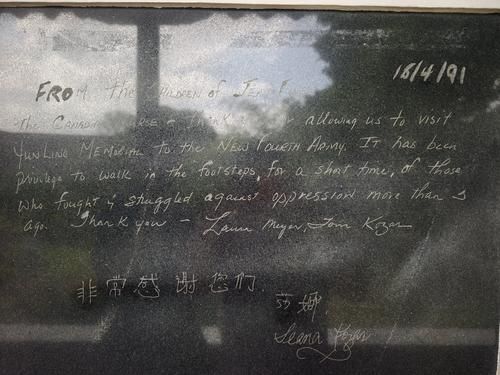 18/4/91
FROM the CHILDREN of JEAN
The CANADIAN NURSE - THANK allowing us to visit
YUNLING MEMORIAL to the NEW FOURTH ARMY. IT has been
privilege to walk in the footsteps, for a short time, of those
who fought & struggled against oppression more than 5
ago. Thank you - Laura Meyer, Tom Kozar
非常感谢您们
莎娜
Leana Kozar